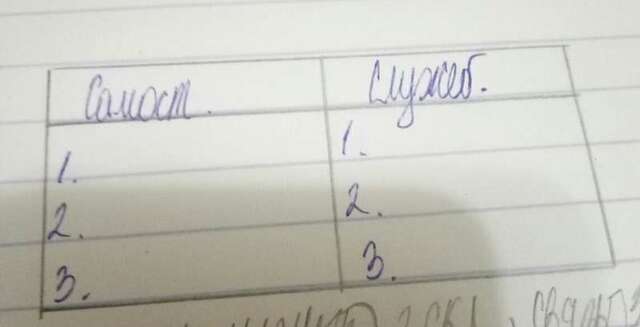 Самост. Служеб.
1. 1.
2. 2.
3. 3.